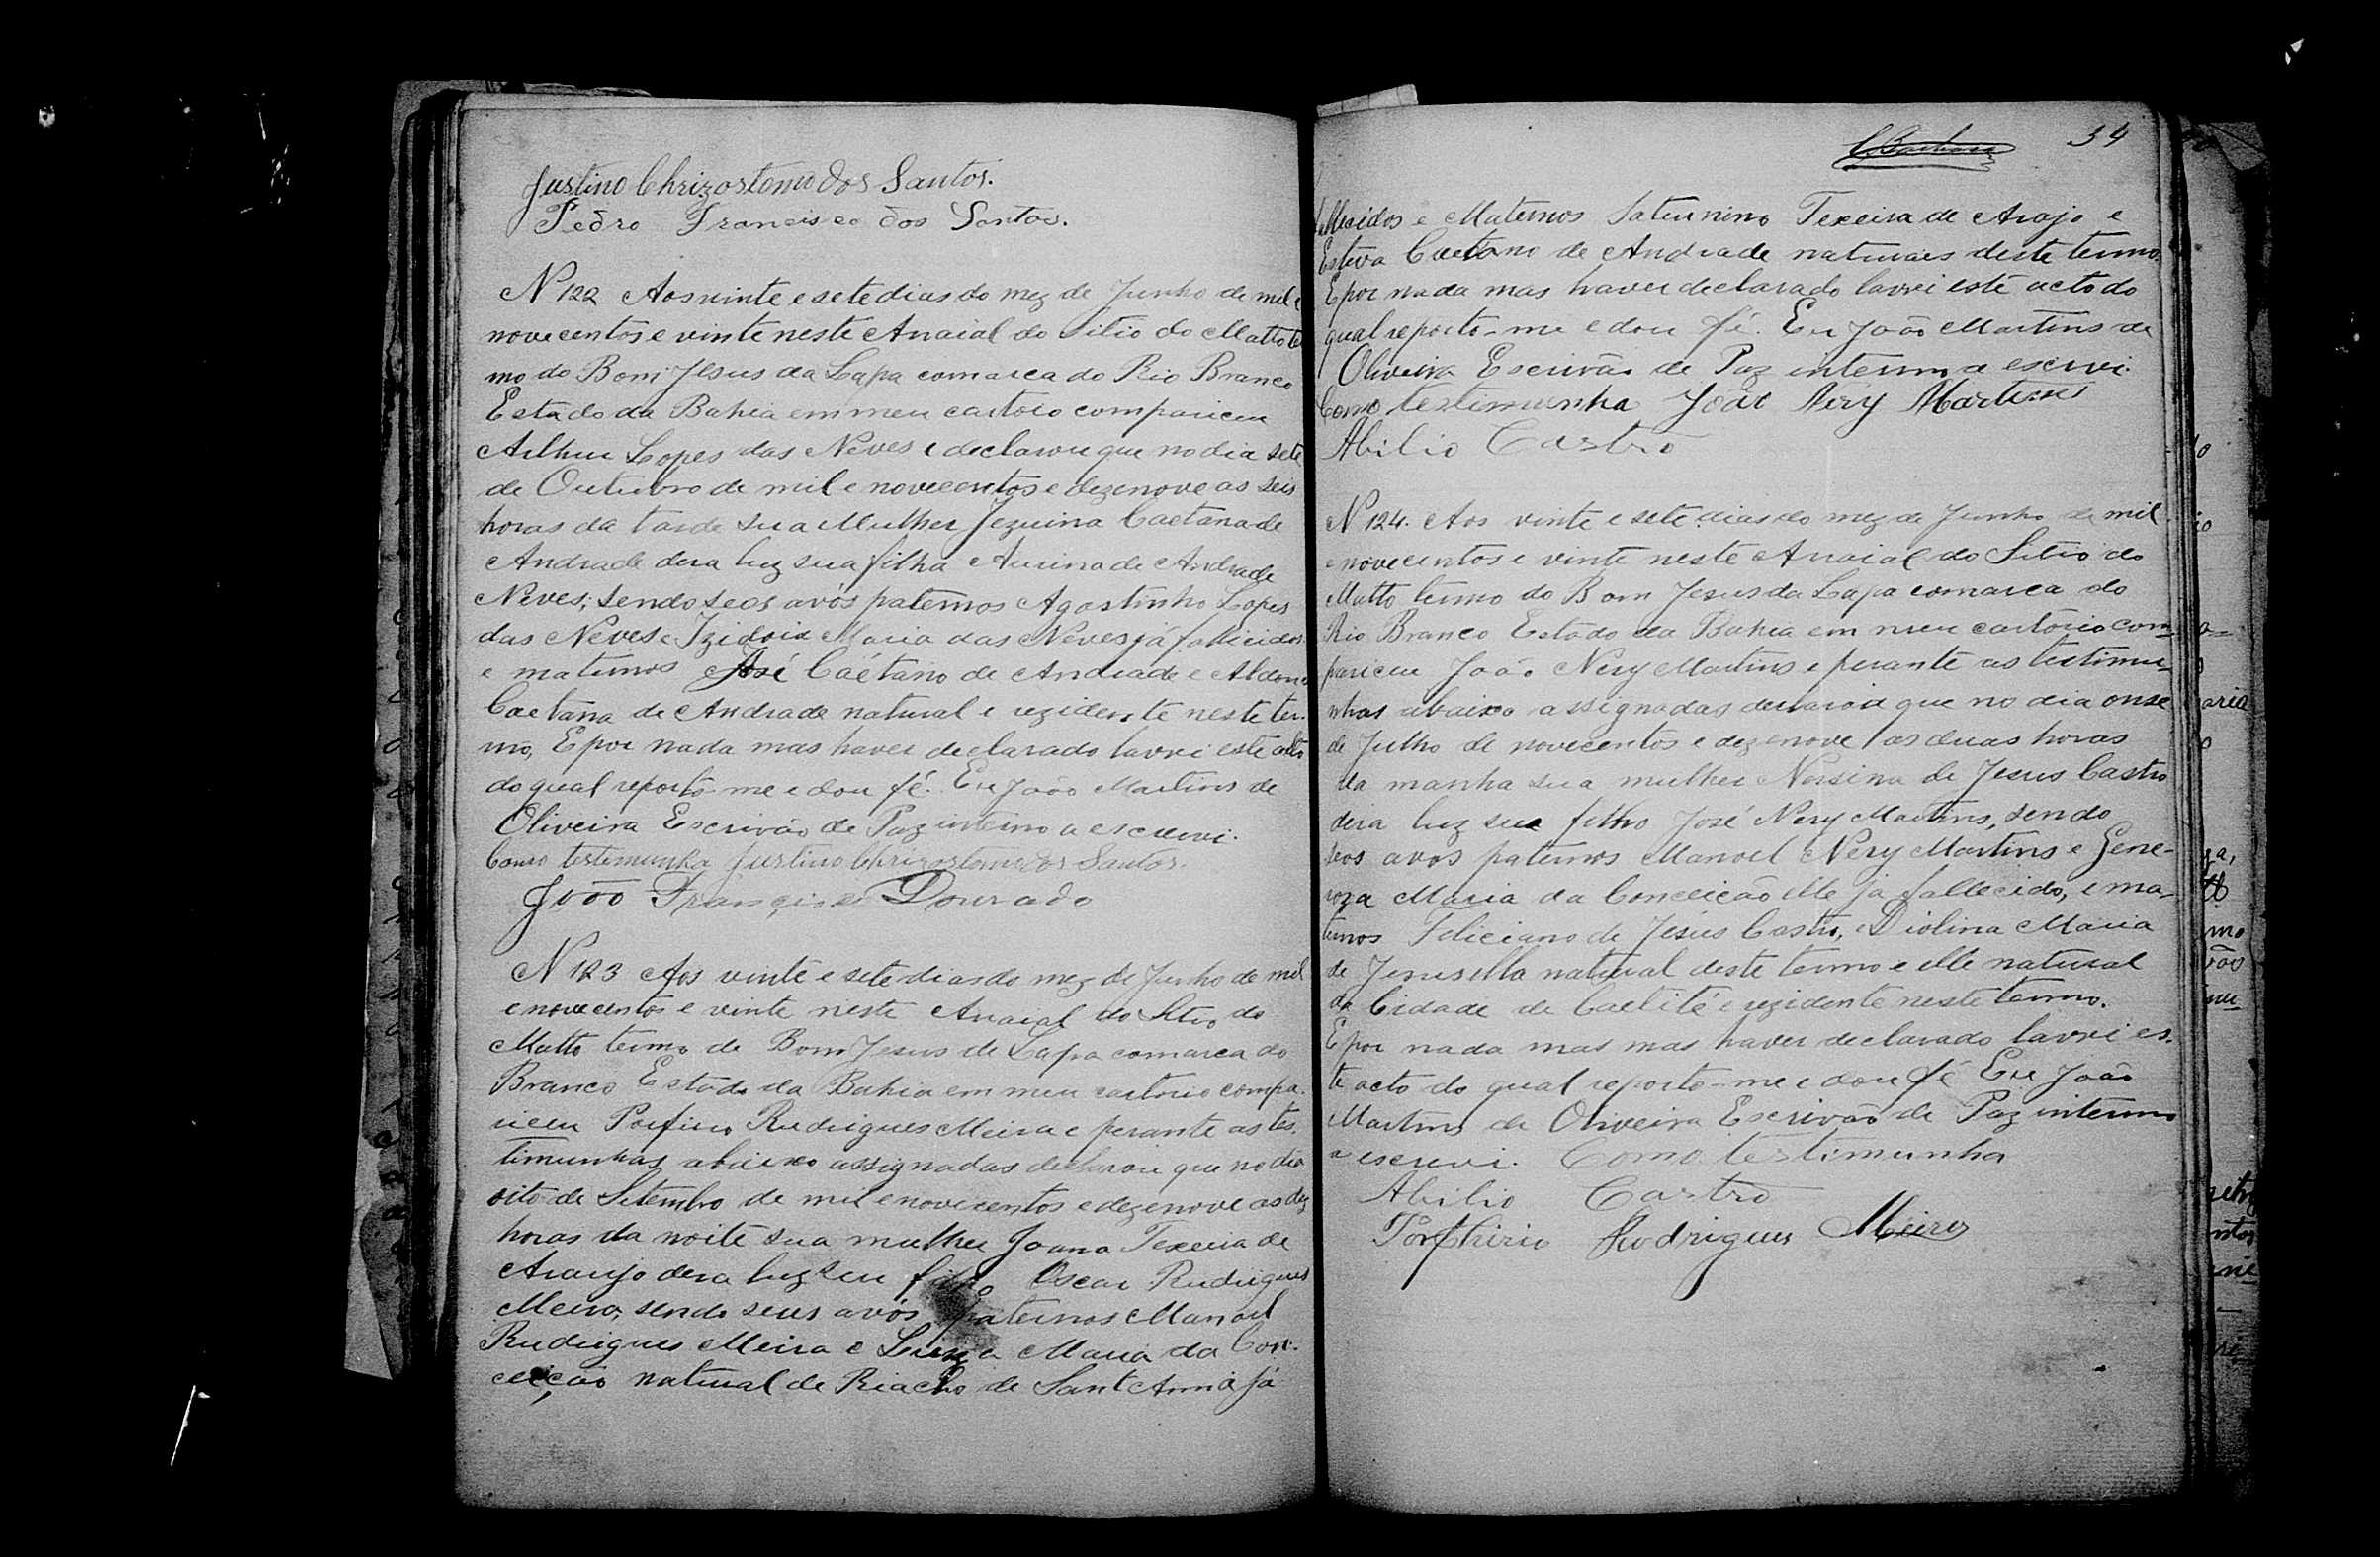 Justino Chrizostomo dos Santos.
Pedro Francisco dos Santos.
N 122 Aos vinte e sete dias do mez de Junho de mil e
novecentos e vinte neste Arraial do Sitio do Matto ter
mo do Bom Jesus da Lapa comarca do Rio Branco
Estado da Bahia em meu cartorio compareceu
Arthur Lopes das Neves e declarou que no dia sete
de Outubro de mil e novecentos e dezenove as seis
horas da tarde sua Mulher Jezuina Caetana de
Andrade dera luz sua filha Aurina de Andrade
Neves; sendo seos avós paternos Agostinho Lopes
das Neves e Izidoia Maria das Neves já fallicidos
e maternos José Caétano de Andrade e
Caetana de Andrade natural e rezidente neste ter-
mo, E por nada mas haver declarado lavrei este acto
do qual reporto-me e dou fé. Eu João Martins de
Oliveira Escrivão de Paz interino a escrevi.
Como testemunha Justino Chrizostomo dos Santos.
João Francisco Dourado
N 123 Aos vinte e sete dias do mez de Junho de mil
e novecentos e vinte neste Arraial do Sitio do
Matto termo de Bom Jesus de Lapa comarca do
Branco Estado da Bahia em meu cartorio compa-
receu Porfirio Rudrigues Meira e perante as tes-
timunhas abaixo assignadas declarou que no dia
oito de Setembro de mil e novecentos e dezenove as dez
horas da noite sua mulher Joana Texeira de
Araujo dera luz seu filho Oscar Rudrigues
Meira, sendo seus avós paternos Manoel
Rudrigues Meira e Luiza Maria da Con-
ceição natural de Riacho de Sant Anna já
34
fallecidos e Maternos Saturnino Texeira de Arajo e
Esteva Caetano de Andrade naturais deste termo.
E por nada mas haver declarado lavrei este acto do
qual reporto-me e dou fé. Eu João Martins de
Oliveira Escrivão de Paz interino a escrevi.
Como testemunha João Nery Martins
Abilio Castro
N 124. Aos vinte e sete dias do mez de Junho de mil
e novecentos e vinte neste Arraial do Sitio do
Matto termo do Bom Jesus da Lapa comarca do
Rio Branco Estado da Bahia em meu cartorio com-
pareceu João Nery Martins e perante as testimu-
nhas abaixo assignadas declarou que no dia onze
de Julho de novecentos e dezenove as duas horas
da manha sua mulher Nersina de Jesus Castro
dera luz seu filho José Nery Martins, sendo
seos avos paternos Manoel Nery Martins e Gene-
roza Maria da Conceicão elle já fallecido, e ma-
ternos Feliciano de Jesus Castro, e Diolina Maria
de Jesus ella natural deste termo e elle natural
da Cidade de Caetité e rezidente neste termo.
E por nada mas mas haver declarado lavrei es-
te acto do qual reporto-me e dou fé Eu João
Martins de Oliveira Escrivão de Paz interino
a escrevi. Como testimunha
Abilio Castro
Porfhirio Rodrigues Meira